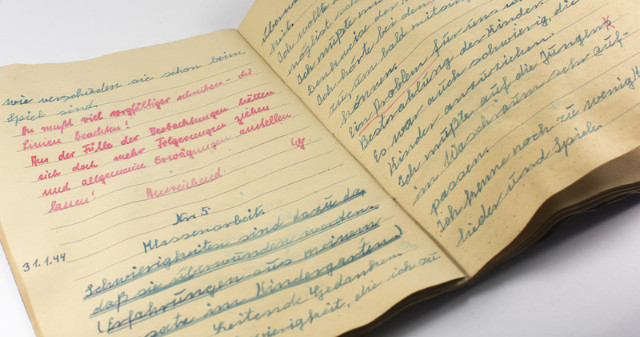 wie verschieden sie schon beim
Spiel sind.
Du mußt viel sorgfältiger schreiben - die
Linien beachten!
Aus der Fülle der Beobachtungen hätten
sich doch mehr Folgerungen ziehen
und allgemeine Erwägungen anstellen
lassen!
Ausreichend.
Nr. 5
Klassenarbeit.
31.1.44
Schwierigkeiten sind dazu da,
daß sie überwunden werden.
(Erfahrungen aus meinem
im Kindergarten)
Leitende Gedanken
ehe ich zu
Ich wollte
Ich mußte
Ich hörte bei den
zu, um bald mitsingen
können.
Ein Problem für uns
Bestrahlung der Kinder.
Es war auch schwierig, die
Kinder anzuziehen.
Ich mußte auf die Jungen
im Waschraum sehr auf-
passen.
Ich kenne noch zu wenig
Lieder und Spiele